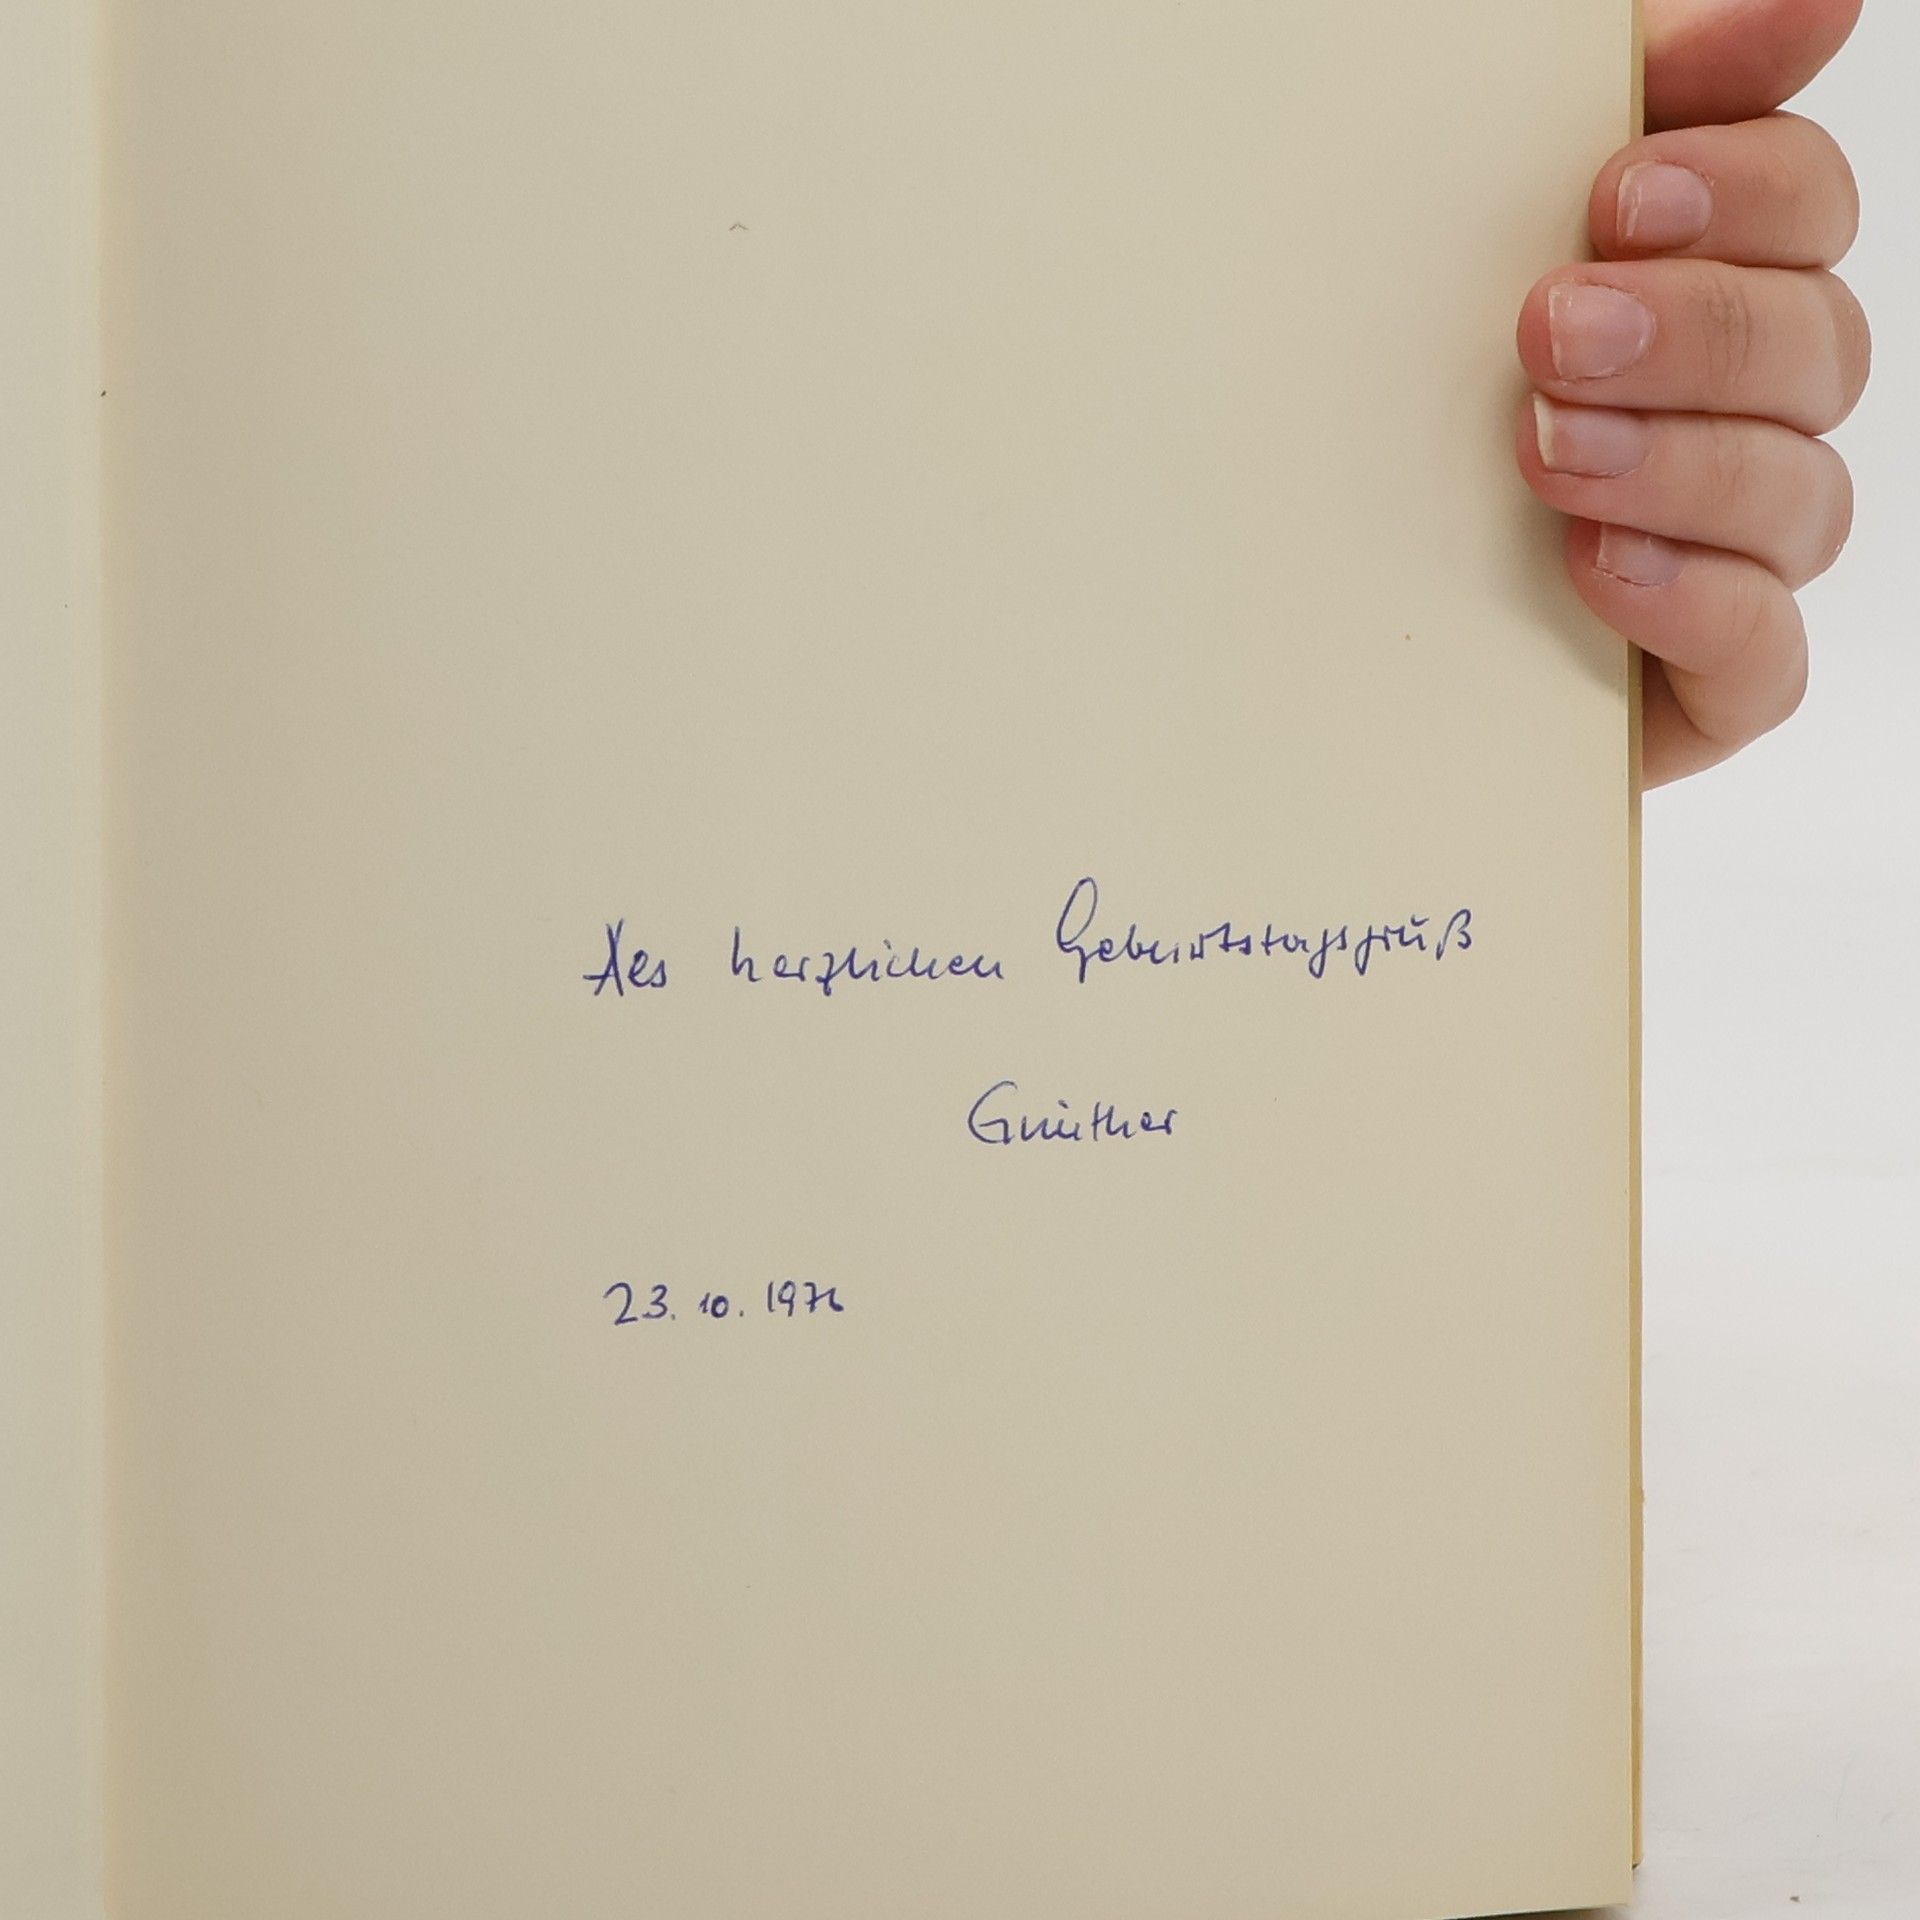 Als herzlichen Geburtstagsgruß
Günther
23. 10. 1976